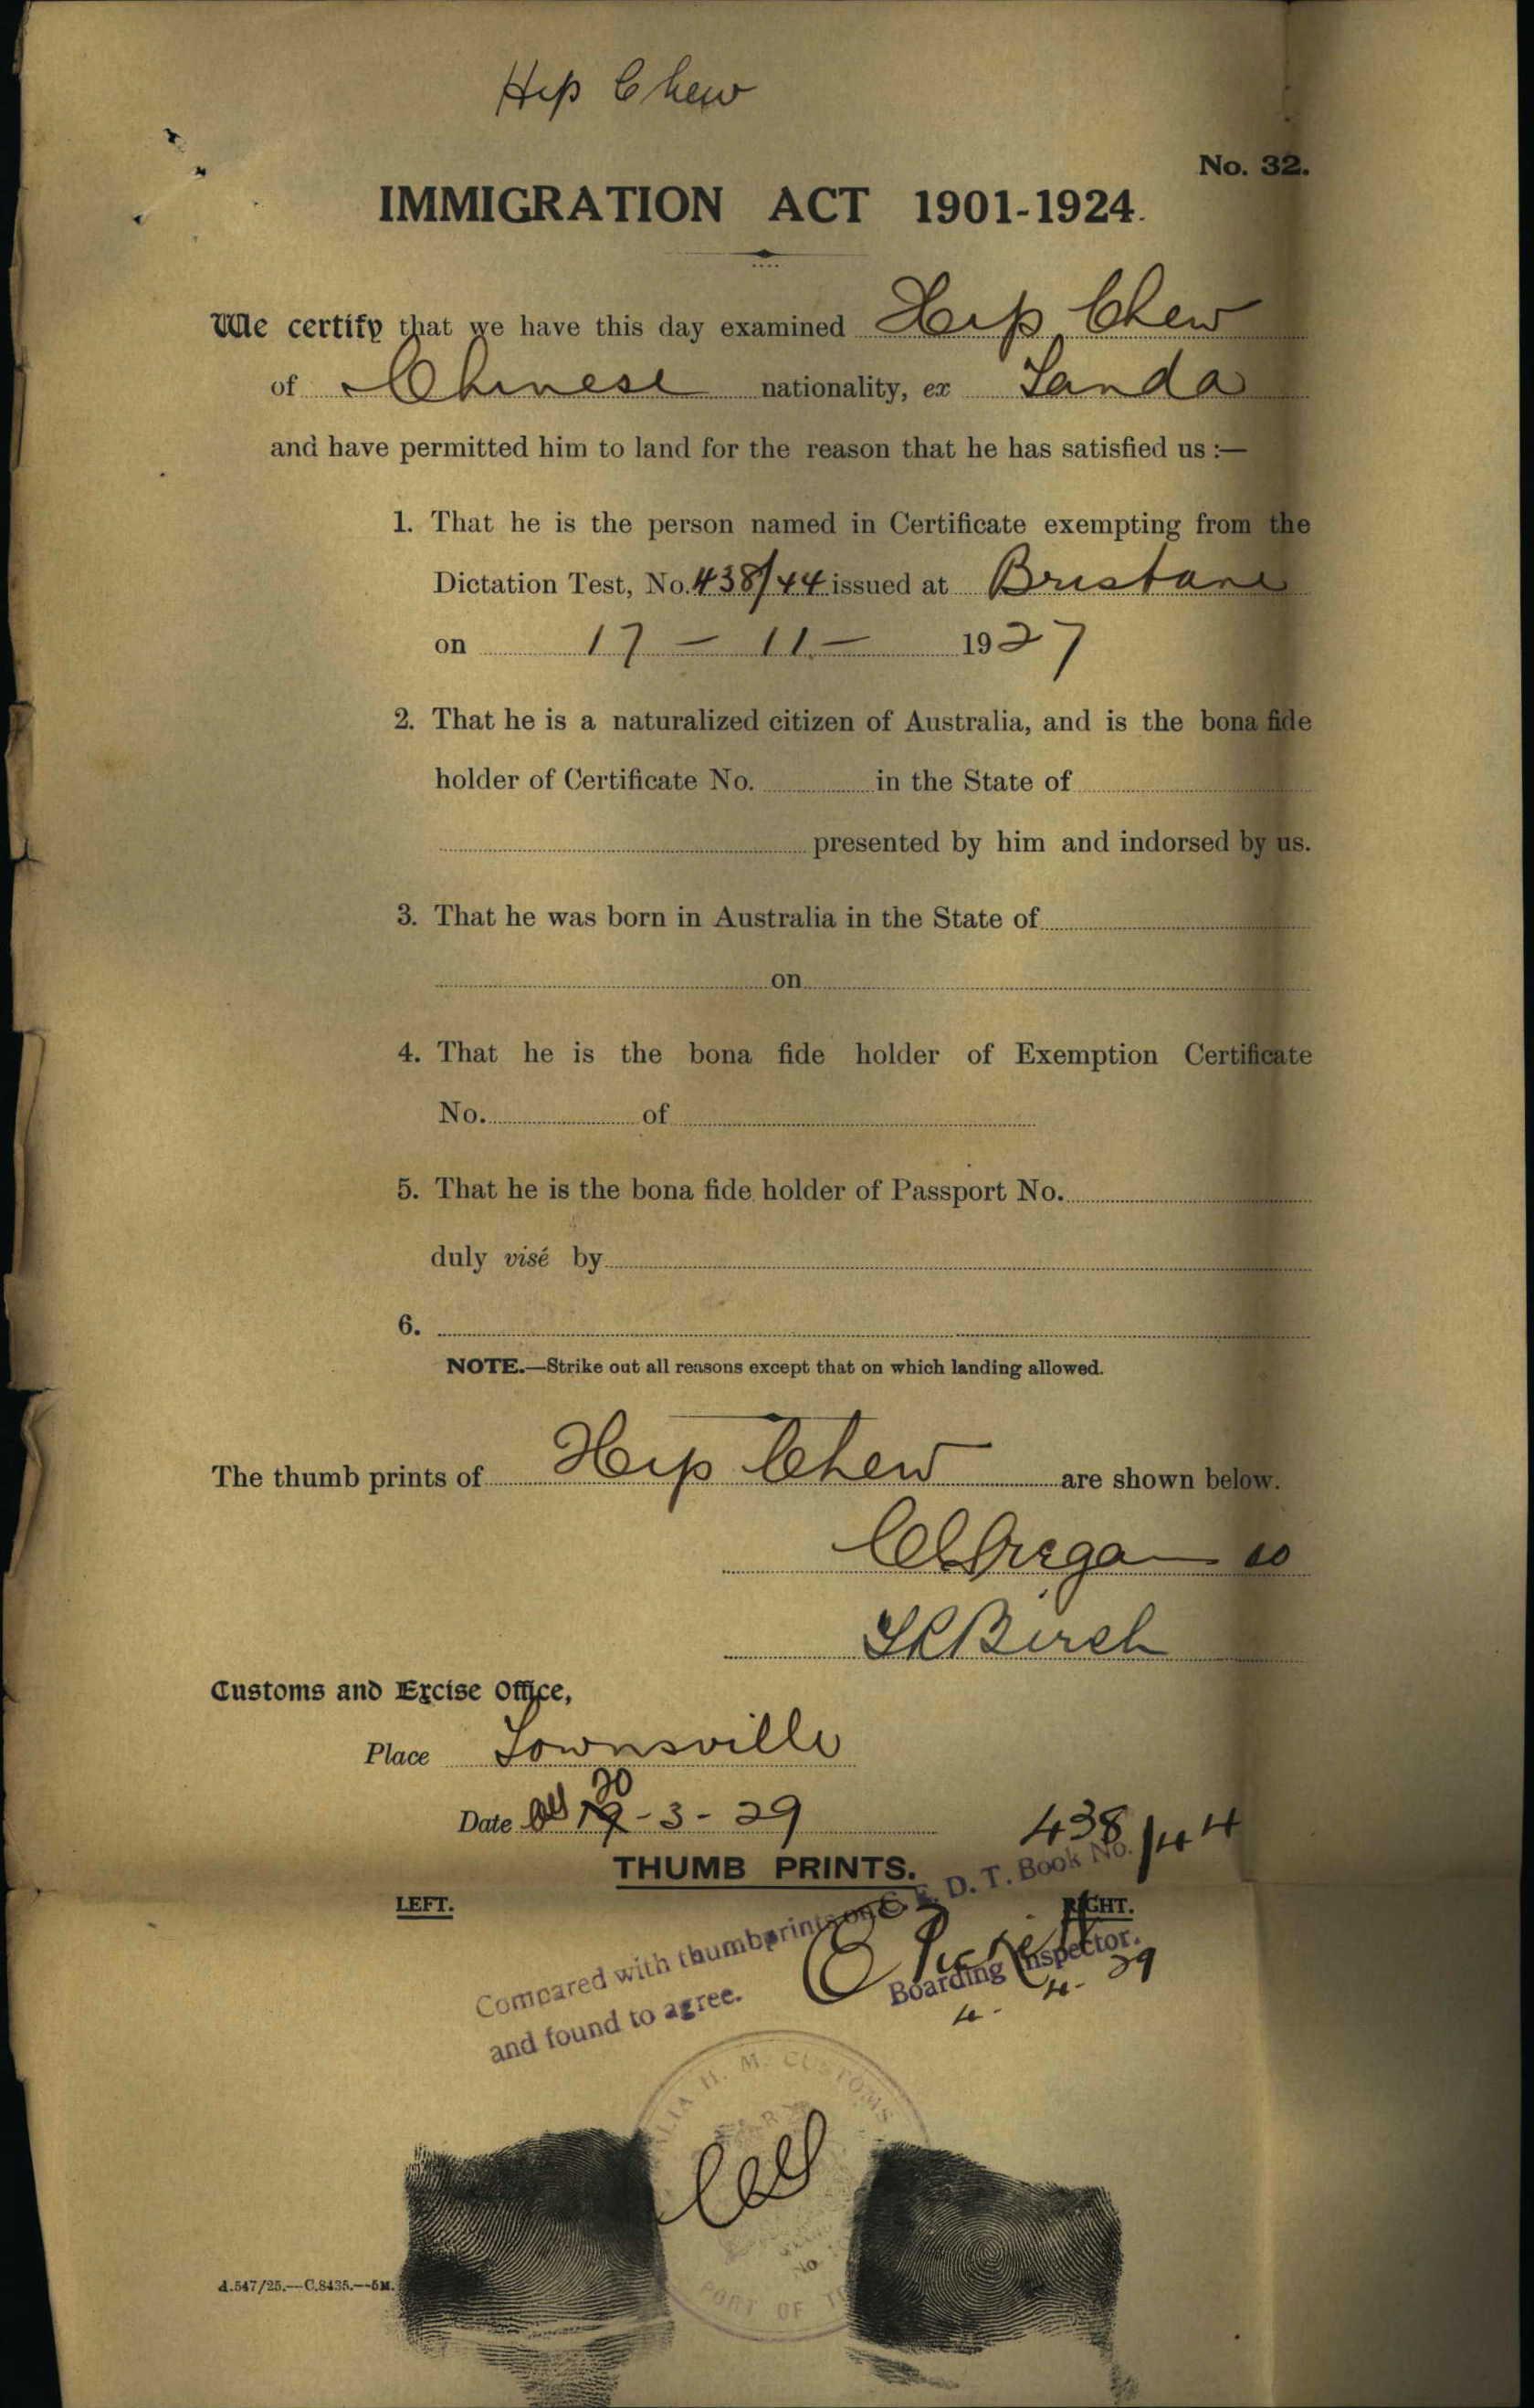 Hip Chew
No. 32.
IMMIGRATION ACT 1901-1924.
We certify that we have this day examined Hip Chew
of Chinese nationality, ex Tanda
and have permitted him to land for the reason that he has satisfied us :—
1. That he is the person named in Certificate exempting from the
Dictation Test, No. 438/44 issued at Brisbane
on 17 - 11 - 1927
2. That he is a naturalized citizen of Australia, and is the bona fide
holder of Certificate No. in the State of
presented by him and indorsed by us.
3. That he was born in Australia in the State of
on
4. That he is the bona fide holder of Exemption Certificate
No. of
5. That he is the bona fide holder of Passport No.
duly visé by
6.
NOTE.—Strike out all reasons except that on which landing allowed.
The thumb prints of Hip Chew are shown below.
Birch
Customs and Excise Office,
Place Townsville
Date 20-3-29
438/44
THUMB PRINTS.
LEFT. RIGHT.
Compared with thumbprints on C. E. D. T. Book No.
and found to agree.
Boarding Inspector.
4. 4. 29
H. M. CUSTOMS
No
PORT OF
A.547/25.—C.8435.—5M.